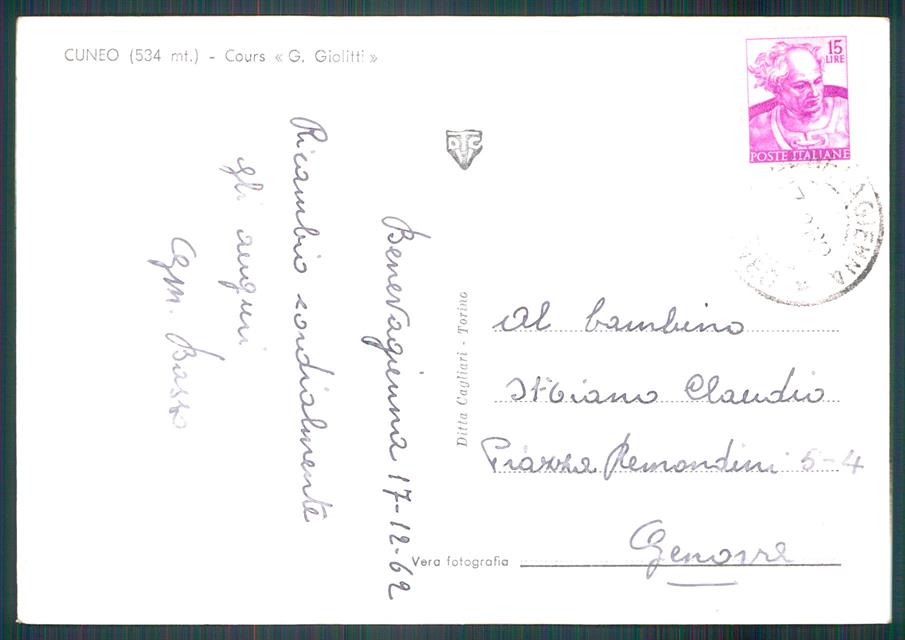 CUNEO (534 mt.) - Cours « G. Giolitti »
15
LIRE
POSTE ITALIANE
Benevagienna 17-12-62
Ricambio cordialmente
gli auguri
Basso
DTC
AGIENNA
Ditta Cagliari - Torino
Al bambino
Claudio
Piazza Remondini 5-4
Genova
Vera fotografia